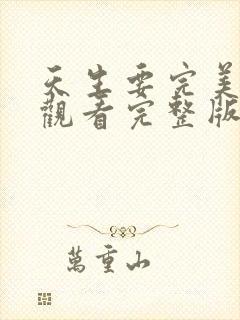 天生要完美
觀看完整版
萬重山